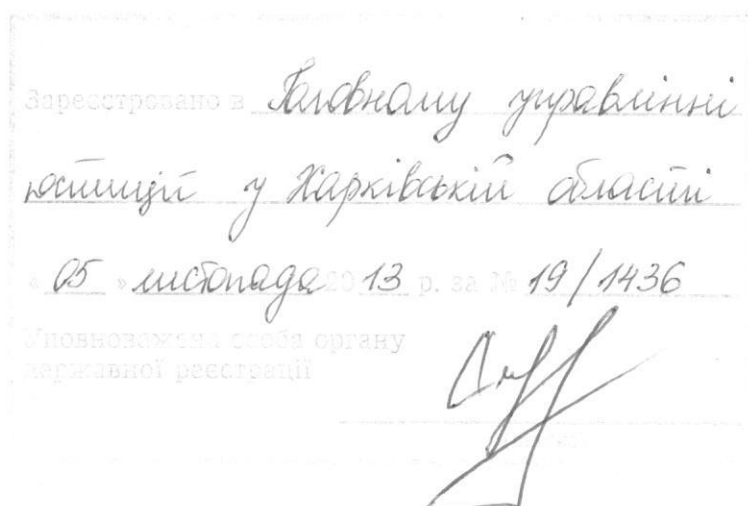 Зареєстровано в Головному управлінні
юстиції у Харківській області
« 05 » листопада 2013 р. за № 19/1436
Уповноважена особа органу
державної реєстрації